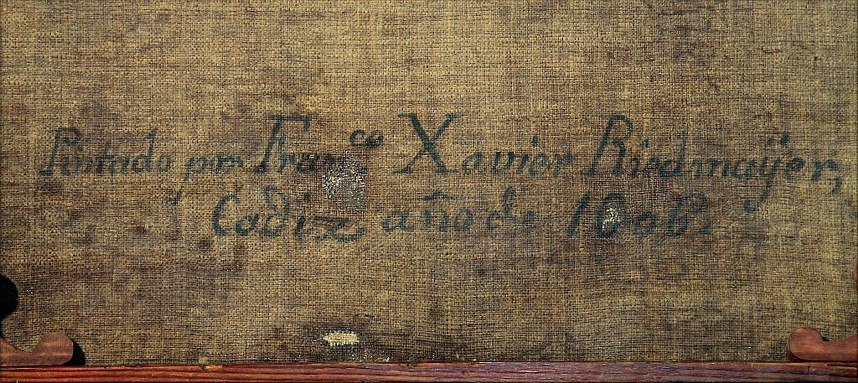 Pintado por Fran.co Xavier Riedmaÿer,
Cadiz año de 1806.